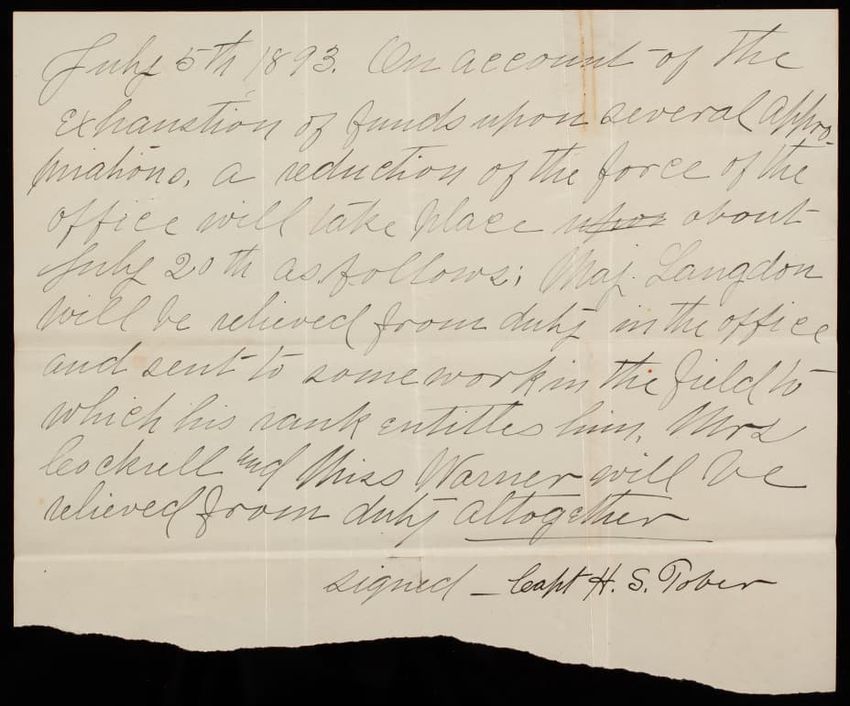 July 5th, 1893. On account of the
exhaustion of funds upon several appro-
priations, a reduction of the force of the
office will take place upon about
July 20th as follows; Maj. Langdon
will be relieved from duty in the office
and sent to some work in the field to
which his rank entitles him. Mrs
Cockrell and Miss Warner will be
relieved from duty altogether
signed - Capt H. S. Tober